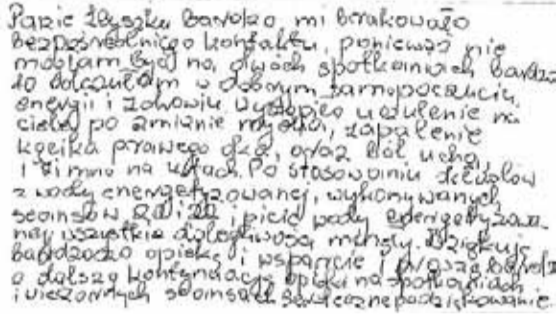 Panie Zbyszku Bardzo, mi brakowało
bezpośredniego kontaktu, ponieważ nie
mogłam być na dwóch spotkaniach bardzo
to odczułam w dobrym samopoczuciu,
energii i zdrowiu. Wystąpiło uczulenie na
ciele po zmianie mydła, zapalenie
kącika prawego oka, oraz ból ucha,
i zimno na ustach. Po stosowaniu
z wody energetyzowanej, wykonywanych
seansów i picie wody energetyzowa
nej wszystkie dolegliwości minęły. Dziękuję
bardzo za opiekę i wsparcie i proszę bardzo
o dalszą kontynuację opieki na spotkaniach
i wieczornych seansach. Serdeczne podziękowanie.